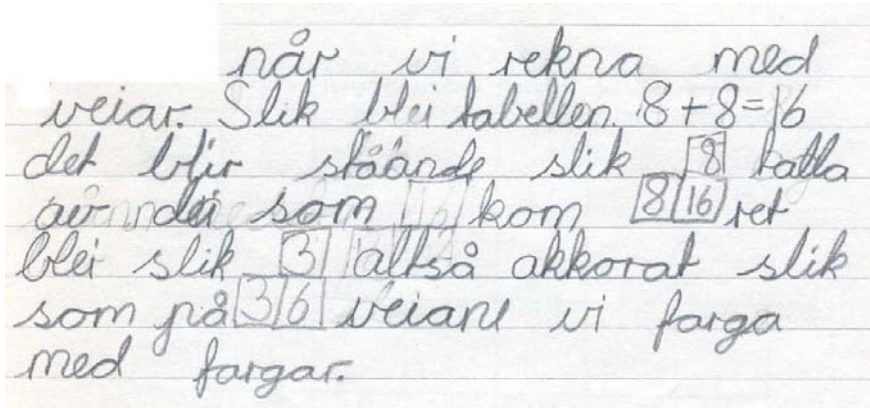 når vi rekna med
veiar. Slik blei tabellen. 8+8=16
det blir ståande slik 8
av dei som kom 8 16 ret
blei slik 3 altså akkorat slik
som på 3 6 veiane vi farga
med fargar.